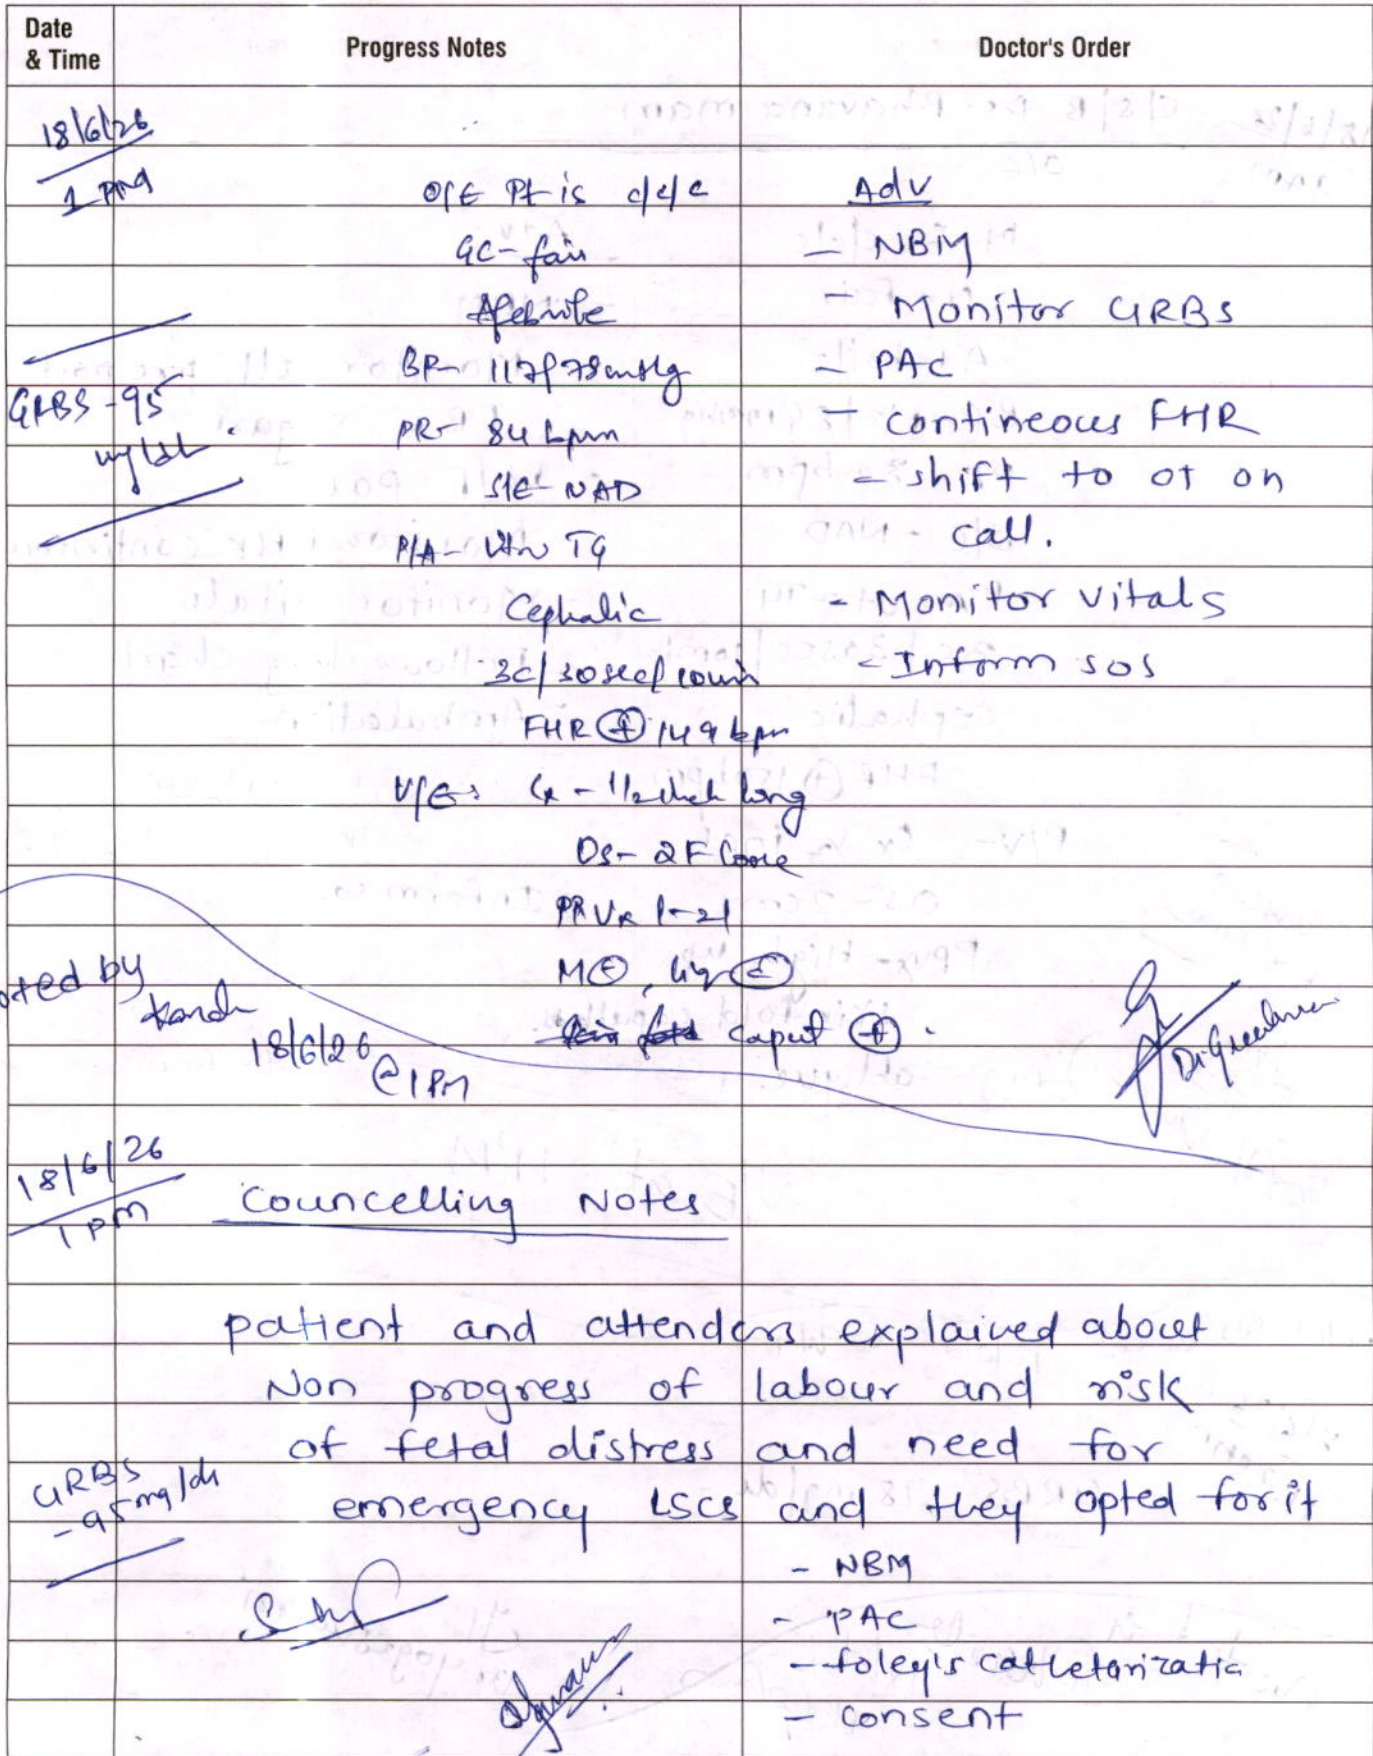 Date & Time
Progress Notes
Doctor's Order
18/6/26
1 PM
O/E Pt is c/c/c
GC - fair
Afebrile
BP - 117/78 mmHg
PR - 84 bpm
S/E - NAD
P/A - Utn TG
Cephalic
3c/30sec/10min
FHR ⊕ 149 bpm
V/E: Cx - 1/2 inch long
Os - 2F loose
PPVx (-2)
M⊖, liq
caput ⊕.
GRBS - 95 mg/dl.
Adv
- NBM
- Monitor GRBS
- PAC
- contineous FHR
- shift to OT on
call.
- Monitor vitals
- Inform SOS
oted by
18/6/26
@ 1 PM
18/6/26
1 pm
Councelling Notes
patient and attenders explained about
Non progress of labour and risk
of fetal distress and need for
emergency LSCS and they opted for it
GRBS
- 95 mg/dl
- NBM
- PAC
- foley's catheterizatia
- consent